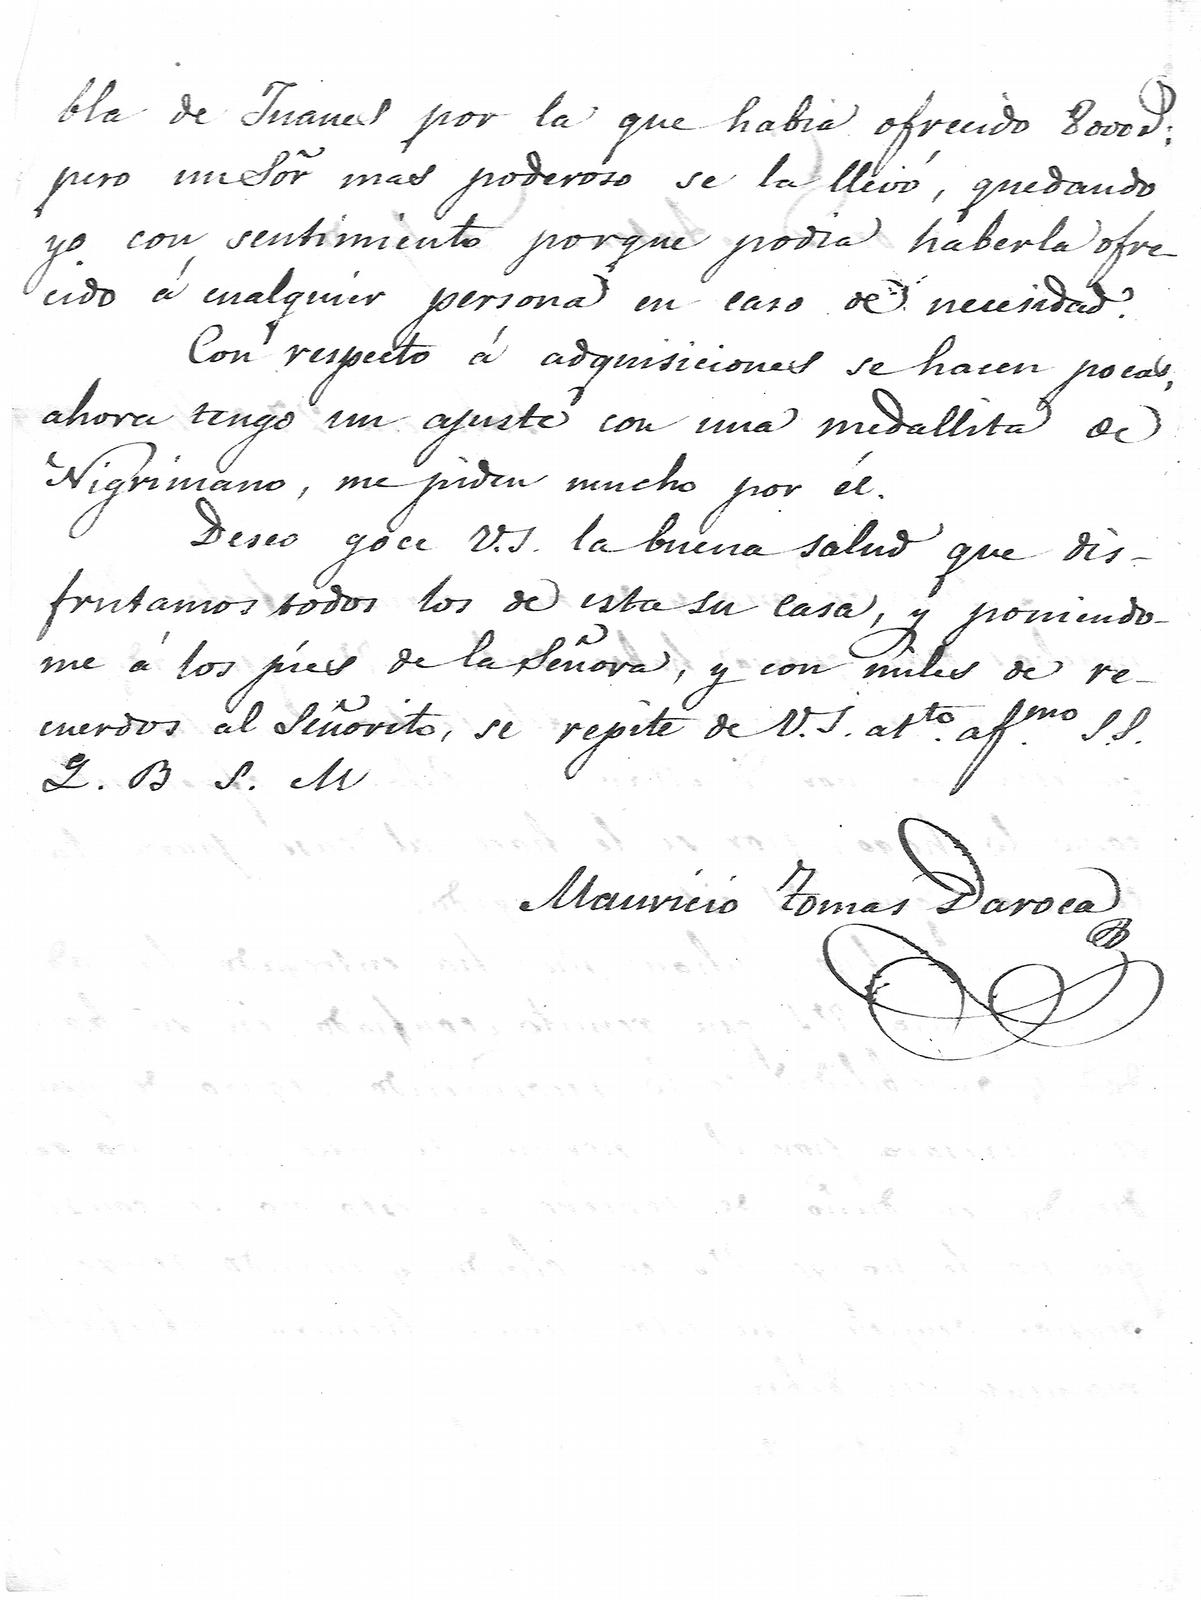 bla de Juanes por la que habia ofrecido 8000
pero un Sõr mas poderoso se la llevó, quedando
yo con sentimiento porque podia haberla ofre-
cido á cualquier persona en caso de necesidad.
Con respecto á adquisiciones se hacen pocas,
ahora tengo un ajuste con una medallita de
Nigriniano, me piden mucho por él.
Deseo goce V.S. la buena salud que dis-
frutamos todos los de esta su casa, y poniendo-
me á los pies de la Señora, y con miles de re-
cuerdos al Señorito, se repite de V.S. atto. affmo S.S.
Q. B S. M
Mauricio Tomas Daroca